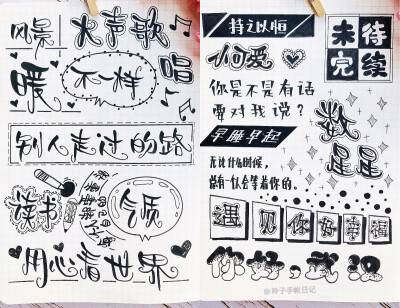 风景
大声歌唱
暖
不一样
别人走过的路
读书
气质
用心看世界
持之以恒
小可爱
你是不是有话
要对我说?
早睡早起
无论什么时候,
总有一人会等着你的。
未待
完续
数
星星
遇见你好幸福
你好,或混
@羚子手帐日记